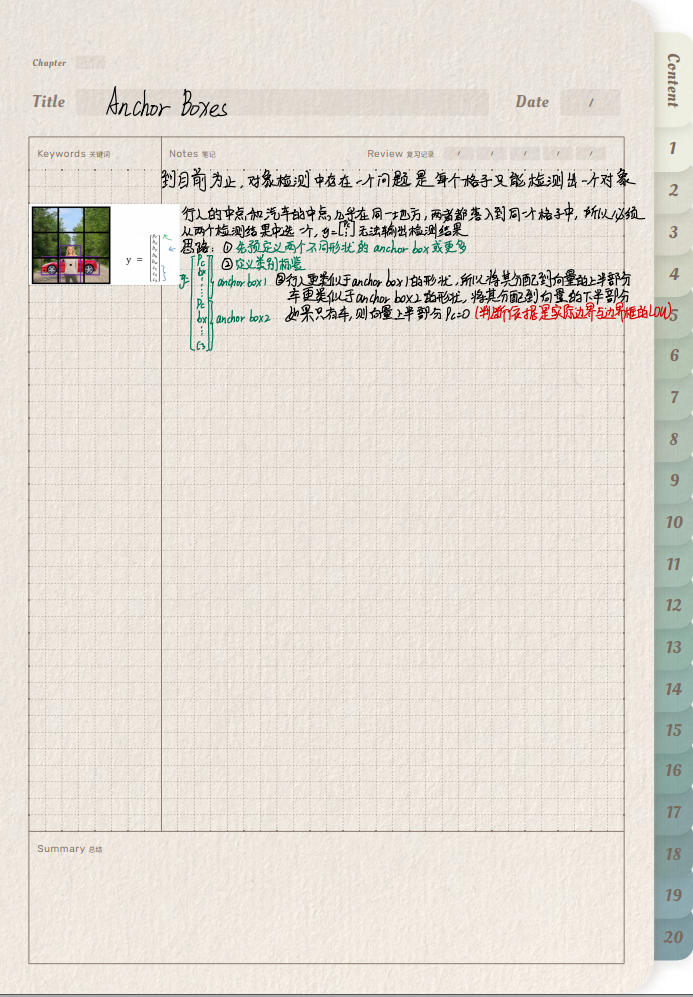 Chapter
Title Anchor Boxes Date /
Content
Keywords 关键词 Notes 笔记 Review 复习记录 / / / / /
到目前为止，对象检测中存在一个问题是每个格子只能检测出一个对象
行人的中点和汽车的中点，几乎在同一地方，两者都落入到同一个格子中，所以必须
从两个检测结果中选一个，y= 无法输出检测结果
思路：① 先预定义两个不同形状的 anchor box 或更多
② 定义类别标签
y =
y= Pc
bx
⋮
Pc
bx
⋮
C3
anchor box1
anchor box2
③行人更类似于anchor box1的形状，所以将其分配到向量的上半部分
车更类似于anchor box2的形状，将其分配到向量的下半部分
如果只有车，则向量上半部分 Pc=0 (判断依据是实际边界与边界框的LOU)
Summary 总结
1
2
3
4
5
6
7
8
9
10
11
12
13
14
15
16
17
18
19
20